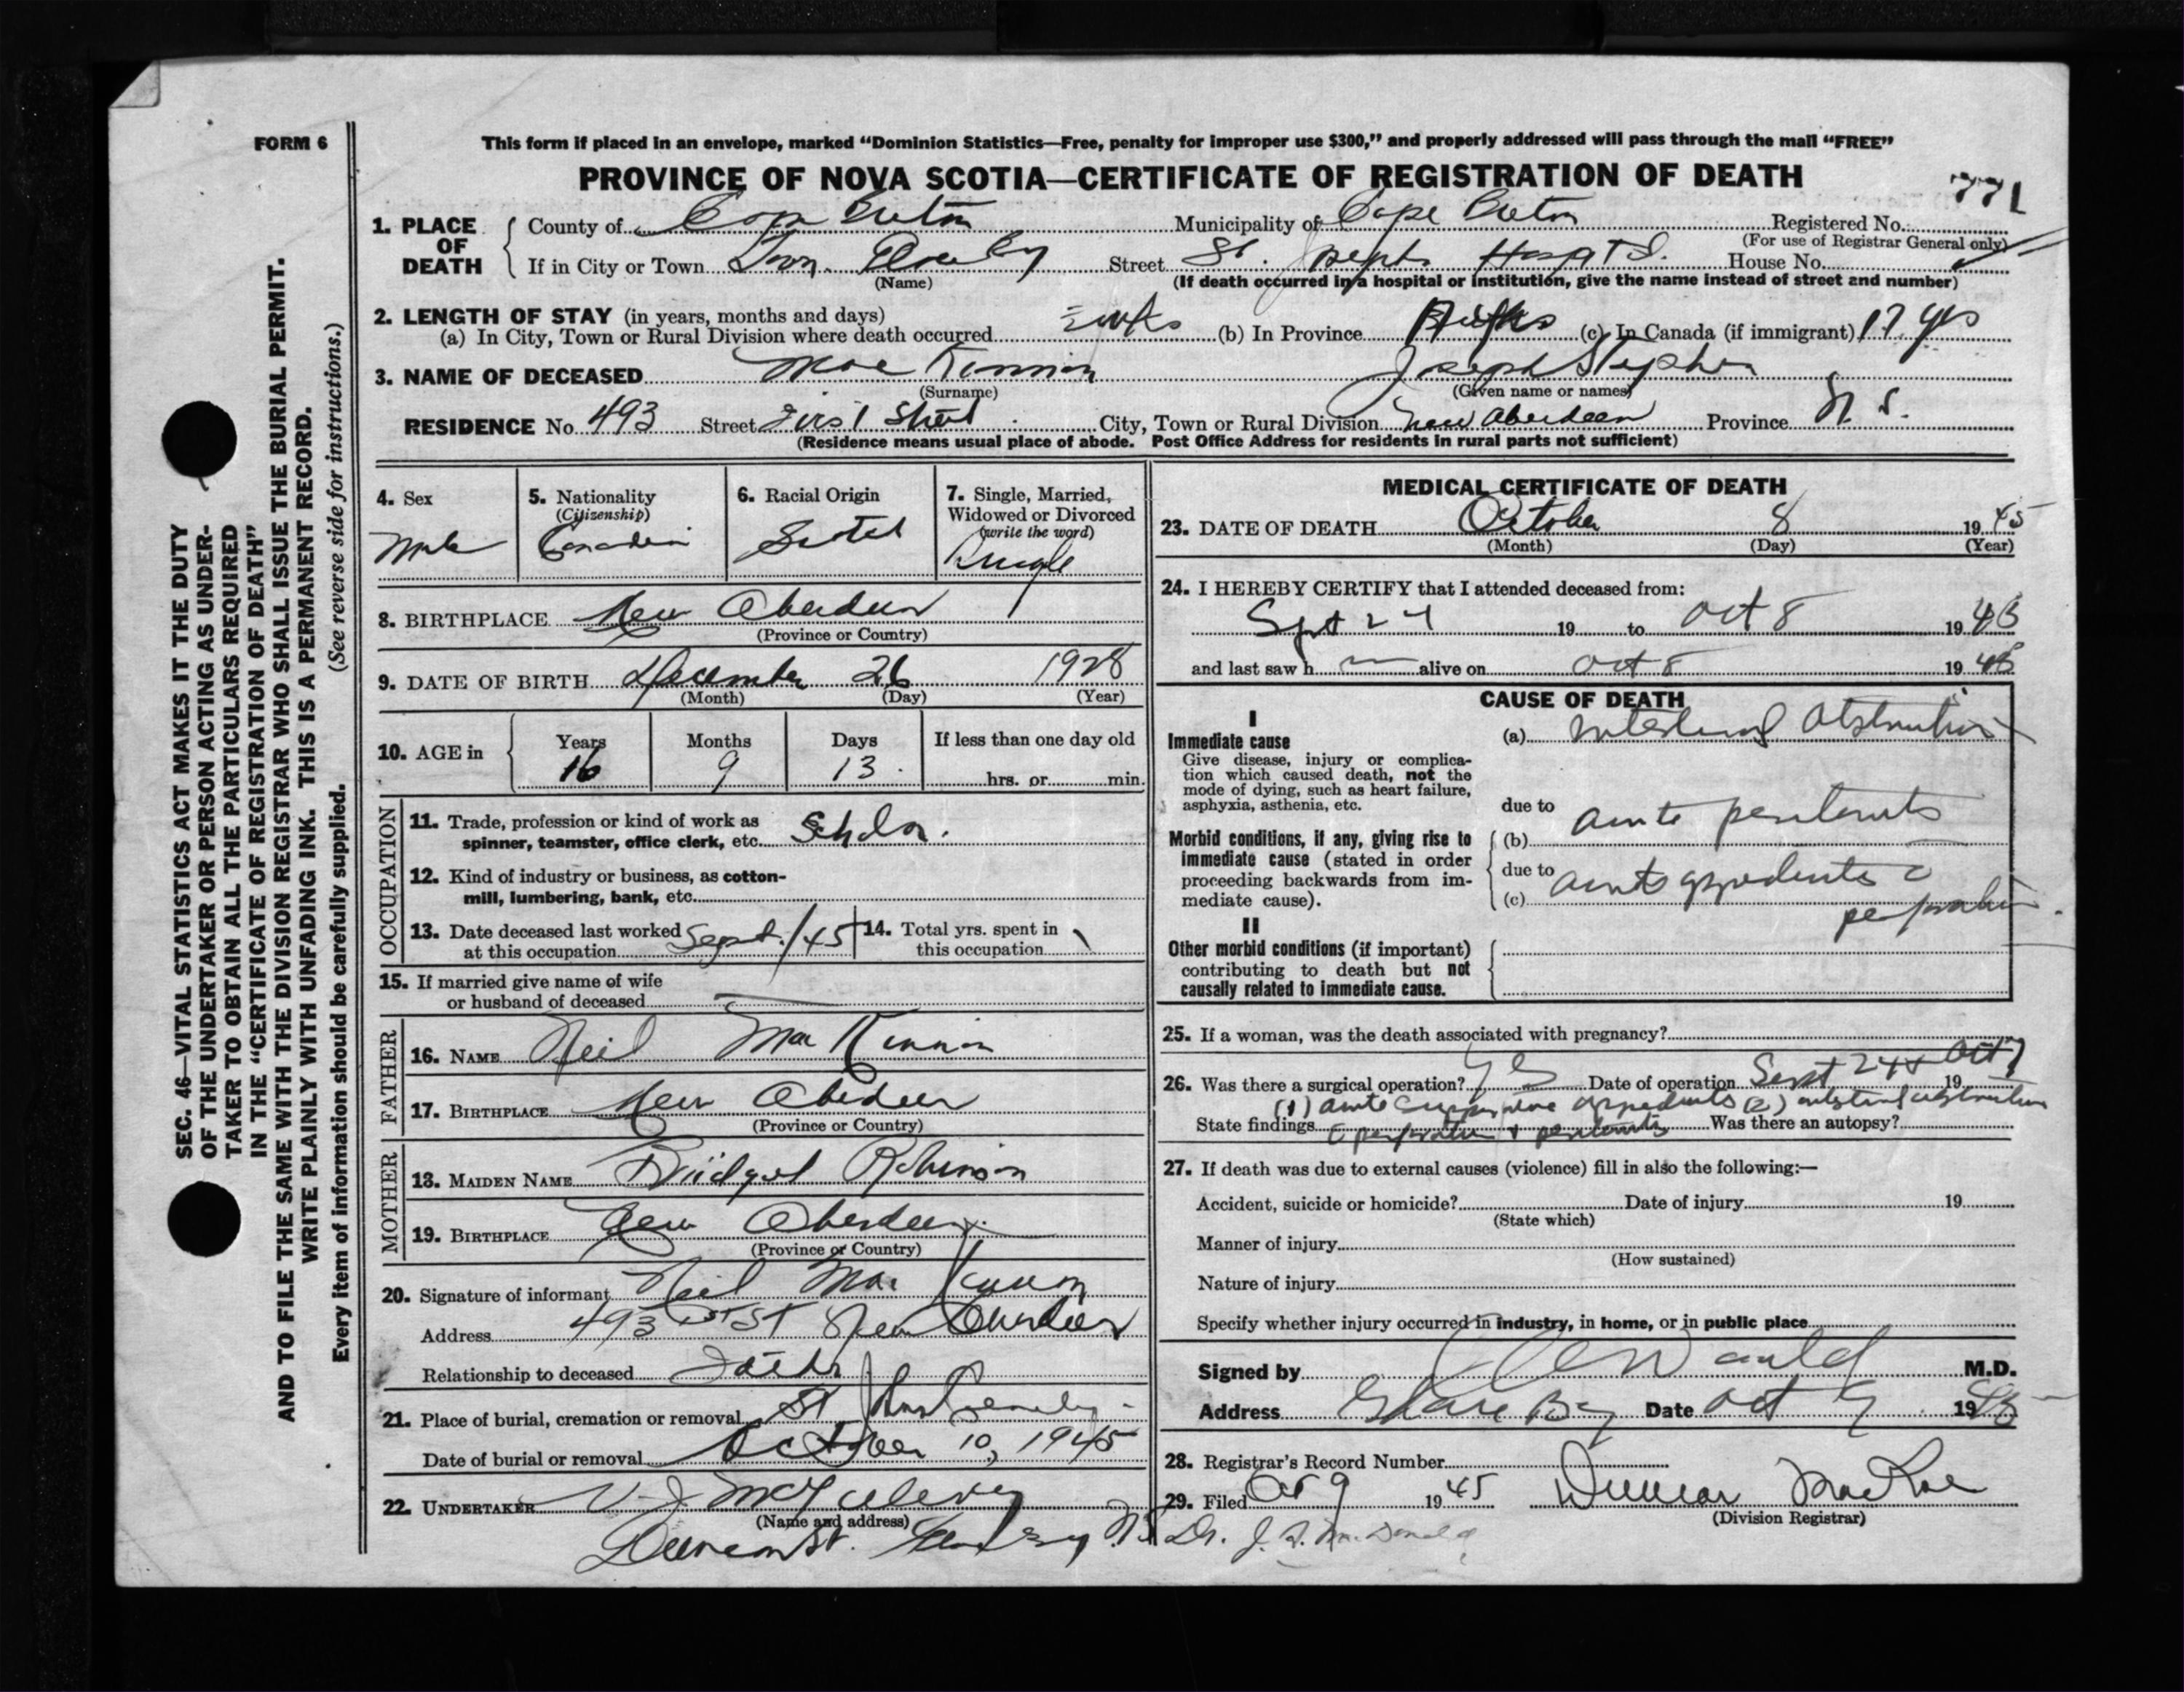 FORM 6
This form if placed in an envelope, marked “Dominion Statistics—Free, penalty for improper use $300,” and properly addressed will pass through the mail “FREE”
PROVINCE OF NOVA SCOTIA—CERTIFICATE OF REGISTRATION OF DEATH
771
1. PLACE OF DEATH County of Cape Breton Municipality of Cape Breton Registered No.
(For use of Registrar General only)
If in City or Town Town Glace Bay Street St. Joseph's Hospital House No.
(Name) (If death occurred in a hospital or institution, give the name instead of street and number)
2. LENGTH OF STAY (in years, months and days)
(a) In City, Town or Rural Division where death occurred 2 wks (b) In Province (c) In Canada (if immigrant) 17 yrs
3. NAME OF DECEASED MacKinnon Joseph Stephen
(Surname) (Given name or names)
RESIDENCE No. 493 Street First Street City, Town or Rural Division New Aberdeen Province N.S.
(Residence means usual place of abode. Post Office Address for residents in rural parts not sufficient)
4. Sex 5. Nationality 6. Racial Origin 7. Single, Married,
(Citizenship) Widowed or Divorced
(write the word)
Male Canadian Scotch Single
8. BIRTHPLACE New Aberdeen
(Province or Country)
9. DATE OF BIRTH December 26 1928
(Month) (Day) (Year)
10. AGE in Years Months Days If less than one day old
16 9 13 hrs. or min.
OCCUPATION
11. Trade, profession or kind of work as
spinner, teamster, office clerk, etc. Scholar.
12. Kind of industry or business, as cotton-
mill, lumbering, bank, etc.
13. Date deceased last worked Sept./45 14. Total yrs. spent in
at this occupation this occupation
15. If married give name of wife
or husband of deceased
FATHER
16. NAME Neil MacKinnon
17. BIRTHPLACE New Aberdeen
(Province or Country)
MOTHER
18. MAIDEN NAME Bridget Robinson
19. BIRTHPLACE New Aberdeen
(Province or Country)
20. Signature of informant Neil MacKinnon
Address 493 1st St New Aberdeen
Relationship to deceased Father
21. Place of burial, cremation or removal St Johns Cemetery
Date of burial or removal October 10, 1945
22. UNDERTAKER V. J. McGillivray
(Name and address)
St. Glace Bay N.S.
MEDICAL CERTIFICATE OF DEATH
23. DATE OF DEATH October 8 1945
(Month) (Day) (Year)
24. I HEREBY CERTIFY that I attended deceased from:
Sept 24 19 to Oct 8 1945
and last saw h m alive on Oct 8 1945
CAUSE OF DEATH
I
Immediate cause (a) Intestinal Obstruction
Give disease, injury or complica-
tion which caused death, not the
mode of dying, such as heart failure,
asphyxia, asthenia, etc.
due to
Morbid conditions, if any, giving rise to (b) acute peritonitis
immediate cause (stated in order
proceeding backwards from im- due to
mediate cause). (c) acute appendicitis c̄
perforation.
II
Other morbid conditions (if important)
contributing to death but not
causally related to immediate cause.
25. If a woman, was the death associated with pregnancy?
26. Was there a surgical operation? Yes Date of operation Sept 24 + Oct 7 19
(1) acute suppurative appendicitis (2) intestinal obstruction
State findings c̄ perforation + peritonitis Was there an autopsy?
27. If death was due to external causes (violence) fill in also the following:—
Accident, suicide or homicide? Date of injury 19
(State which)
Manner of injury
(How sustained)
Nature of injury
Specify whether injury occurred in industry, in home, or in public place
Signed by M.D.
Address Glace Bay Date Oct 9 1945
28. Registrar's Record Number
29. Filed Oct 9 1945 Duncan MacRae
(Division Registrar)
Dr. J. McDonald
SEC. 46—VITAL STATISTICS ACT MAKES IT THE DUTY
OF THE UNDERTAKER OR PERSON ACTING AS UNDER-
TAKER TO OBTAIN ALL THE PARTICULARS REQUIRED
IN THE “CERTIFICATE OF REGISTRATION OF DEATH”
AND TO FILE THE SAME WITH THE DIVISION REGISTRAR WHO SHALL ISSUE THE BURIAL PERMIT.
WRITE PLAINLY WITH UNFADING INK. THIS IS A PERMANENT RECORD.
Every item of information should be carefully supplied. (See reverse side for instructions.)